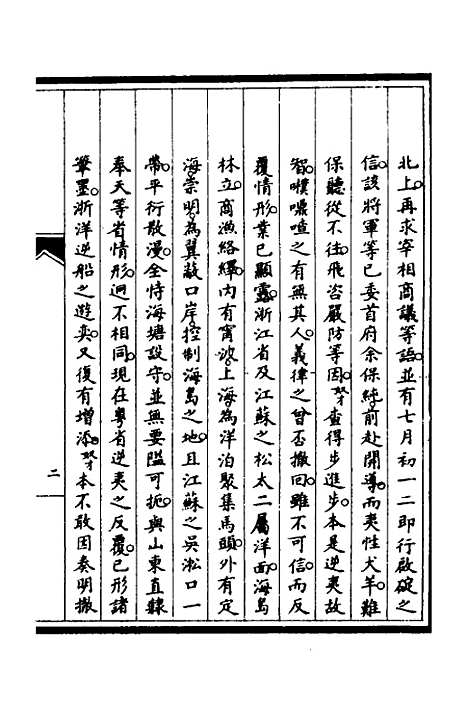 北上。再求宰相商議等語。並有七月初一二即行啟碇之
信。該將軍等已委首府余保純前赴開導。而夷性犬羊。難
保聽從不往。飛咨嚴防等因。奴才查得步進步。本是逆夷故
智。噗㘉喳之有無其人。義律之曾否撤回。雖不可信。而反
覆情形業已顯露。浙江省及江蘇之松太二屬洋面。海島
林立。商漁絡繹。內有甯波。上海為洋泊聚集馬頭。外有定
海。崇明為翼蔽口岸。控制海島之地。且江蘇之吳淞口一
帶。平衍散漫。全恃海塘設守。並無要隘可扼。與山東直隸
奉天等省情形。迥不相同。現在粵省逆夷之反覆。已形諸
筆墨。浙洋逆船之遊奕。又復有增添。奴才本不敢因奏明撤
二